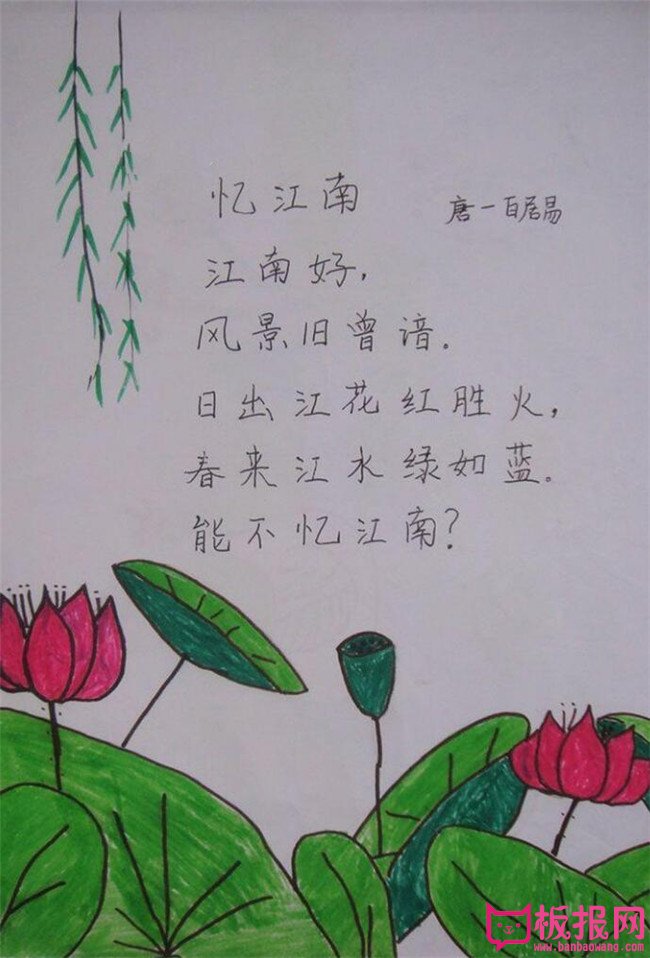 忆江南 唐一白居易
江南好，
风景旧曾谙。
日出江花红胜火，
春来江水绿如蓝。
能不忆江南？
板报网
www.banbaowang.com